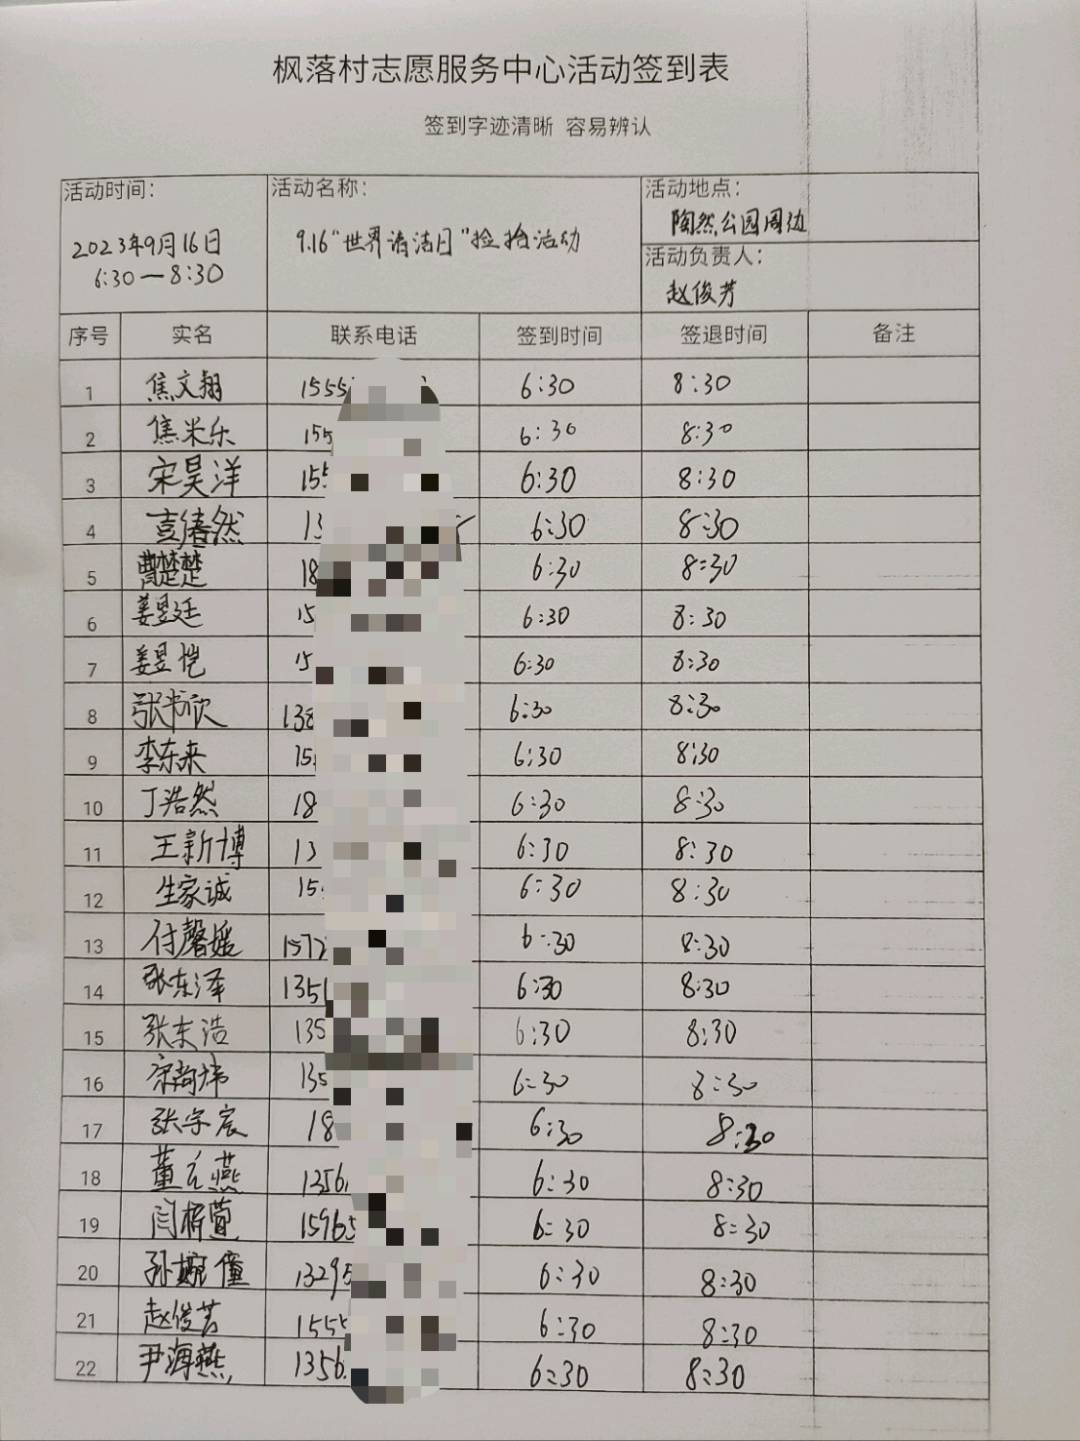 枫落村志愿服务中心活动签到表
签到字迹清晰 容易辨认
活动时间： 活动名称： 活动地点：
陶然公园周边
2023年9月16日 9.16“世界清洁日”捡拾活动
6:30—8:30
活动负责人：
赵俊芳
序号 实名 联系电话 签到时间 签退时间 备注
1 焦文翔 1555 6:30 8:30
2 焦米乐 155 6:30 8:30
3 宋昊洋 155 6:30 8:30
4 13 6:30 8:30
5 曹楚楚 18 6:30 8:30
6 姜昱廷 15 6:30 8:30
7 姜昱恺 15 6:30 8:30
8 张书欣 138 6:30 8:30
9 李东来 15 6:30 8:30
10 丁浩然 18 6:30 8:30
11 王新博 13 6:30 8:30
12 生家诚 15 6:30 8:30
13 付馨媛 1572 6:30 8:30
14 张东泽 1351 6:30 8:30
15 张东浩 135 6:30 8:30
16 宋尚炜 135 6:30 8:30
17 张宇宸 18 6:30 8:30
18 董元燕 1356 6:30 8:30
19 闫梓萱 15965 6:30 8:30
20 孙婉僮 13295 6:30 8:30
21 赵俊芳 1555 6:30 8:30
22 尹海燕 1356 6:30 8:30